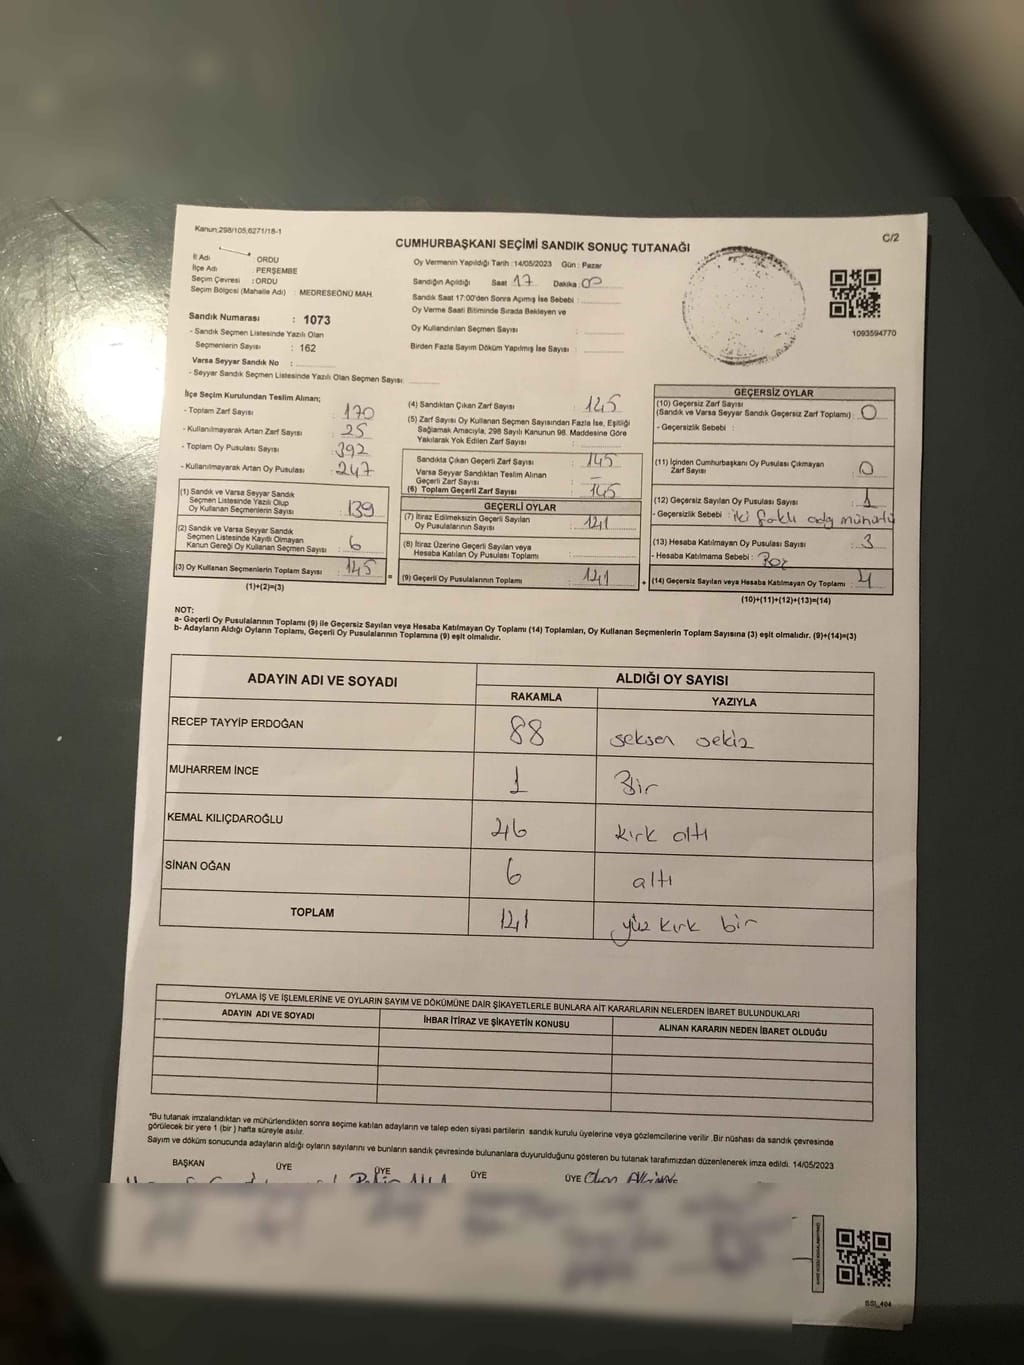 Kanun:298/105,6271/18-1
C/2
CUMHURBAŞKANI SEÇİMİ SANDIK SONUÇ TUTANAĞI
İl Adı : ORDU
İlçe Adı : PERŞEMBE
Seçim Çevresi : ORDU
Seçim Bölgesi (Mahalle Adı) : MEDRESEÖNÜ MAH.
Oy Vermenin Yapıldığı Tarih :14/05/2023 Gün : Pazar
Sandığın Açıldığı Saat 17 Dakika 00
Sandık Saat 17:00'den Sonra Açımış İse Sebebi :
Oy Verme Saati Bitiminde Sırada Bekleyen ve
Oy Kullandırılan Seçmen Sayısı :
Birden Fazla Sayım Döküm Yapılmış İse Sayısı :
1093594770
Sandık Numarası : 1073
- Sandık Seçmen Listesinde Yazılı Olan
Seçmenlerin Sayısı : 162
Varsa Seyyar Sandık No :
- Seyyar Sandık Seçmen Listesinde Yazılı Olan Seçmen Sayısı:
İlçe Seçim Kurulundan Teslim Alınan;
- Toplam Zarf Sayısı : 170
- Kullanılmayarak Artan Zarf Sayısı : 25
- Toplam Oy Pusulası Sayısı : 392
- Kullanılmayarak Artan Oy Pusulası : 247
(1) Sandık ve Varsa Seyyar Sandık
Seçmen Listesinde Yazılı Olup
Oy Kullanan Seçmenlerin Sayısı : 139
(2) Sandık ve Varsa Seyyar Sandık
Seçmen Listesinde Kayıtlı Olmayan
Kanun Gereği Oy Kullanan Seçmen Sayısı : 6
(3) Oy Kullanan Seçmenlerin Toplam Sayısı : 145
(1)+(2)=(3)
(4) Sandıktan Çıkan Zarf Sayısı : 145
(5) Zarf Sayısı Oy Kullanan Seçmen Sayısından Fazla İse, Eşitliği
Sağlamak Amacıyla, 298 Sayılı Kanunun 98. Maddesine Göre
Yakılarak Yok Edilen Zarf Sayısı :
Sandıkta Çıkan Geçerli Zarf Sayısı : 145
Varsa Seyyar Sandıktan Teslim Alınan
Geçerli Zarf Sayısı : –
(6) Toplam Geçerli Zarf Sayısı : 145
GEÇERLİ OYLAR
(7) İtiraz Edilmeksizin Geçerli Sayılan
Oy Pusulalarının Sayısı : 141
(8) İtiraz Üzerine Geçerli Sayılan veya
Hesaba Katılan Oy Pusulası Toplamı :
(9) Geçerli Oy Pusulalarının Toplamı : 141
GEÇERSİZ OYLAR
(10) Geçersiz Zarf Sayısı
(Sandık ve Varsa Seyyar Sandık Geçersiz Zarf Toplamı) : 0
- Geçersizlik Sebebi :
(11) İçinden Cumhurbaşkanı Oy Pusulası Çıkmayan
Zarf Sayısı : 0
(12) Geçersiz Sayılan Oy Pusulası Sayısı : 1
- Geçersizlik Sebebi : iki farklı aday mühürlü
(13) Hesaba Katılmayan Oy Pusulası Sayısı : 3
- Hesaba Katılmama Sebebi : Boş
(14) Geçersiz Sayılan veya Hesaba Katılmayan Oy Toplamı : 4
(10)+(11)+(12)+(13)=(14)
NOT:
a- Geçerli Oy Pusulalarının Toplamı (9) ile Geçersiz Sayılan veya Hesaba Katılmayan Oy Toplamı (14) Toplamları, Oy Kullanan Seçmenlerin Toplam Sayısına (3) eşit olmalıdır. (9)+(14)=(3)
b- Adayların Aldığı Oyların Toplamı, Geçerli Oy Pusulalarının Toplamına (9) eşit olmalıdır.
ADAYIN ADI VE SOYADI
ALDIĞI OY SAYISI
RAKAMLA YAZIYLA
RECEP TAYYİP ERDOĞAN 88 seksen sekiz
MUHARREM İNCE 1 Bir
KEMAL KILIÇDAROĞLU 46 kırk altı
SİNAN OĞAN 6 altı
TOPLAM 141 yüz kırk bir
OYLAMA İŞ VE İŞLEMLERİNE VE OYLARIN SAYIM VE DÖKÜMÜNE DAİR ŞİKAYETLERLE BUNLARA AİT KARARLARIN NELERDEN İBARET BULUNDUKLARI
ADAYIN ADI VE SOYADI İHBAR İTİRAZ VE ŞİKAYETİN KONUSU ALINAN KARARIN NEDEN İBARET OLDUĞU
*Bu tutanak imzalandıktan ve mühürlendikten sonra seçime katılan adayların ve talep eden siyasi partilerin sandık kurulu üyelerine veya gözlemcilerine verilir .Bir nüshası da sandık çevresinde
görülecek bir yere 1 (bir ) hafta süreyle asılır.
Sayım ve döküm sonucunda adayların aldığı oyların sayılarını ve bunların sandık çevresinde bulunanlara duyurulduğunu gösteren bu tutanak tarafımızdan düzenlenerek imza edildi. 14/05/2023
BAŞKAN ÜYE ÜYE ÜYE ÜYE
SSİ_404